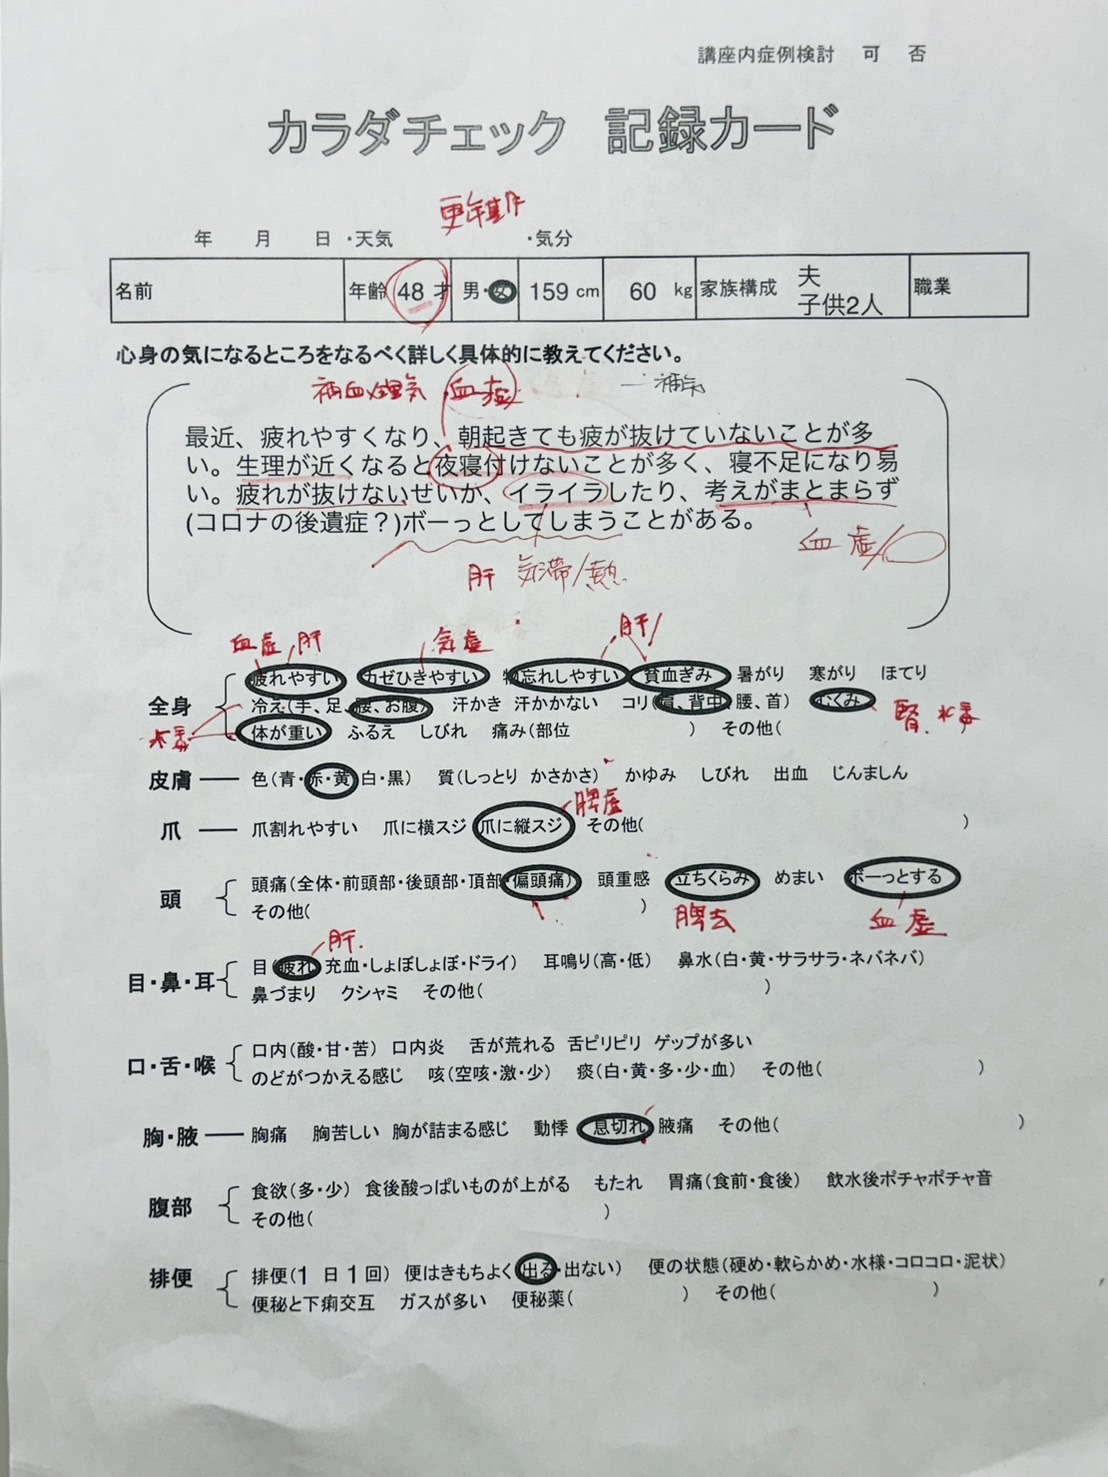 講座内症例検討 可 否
カラダチェック 記録カード
更年期
年 月 日 ・天気 ・気分
名前 年齢 48 才 男・女 159 cm 60 kg 家族構成 夫 子供2人 職業
心身の気になるところをなるべく詳しく具体的に教えてください。
補血 理気 血虚 補気
最近、疲れやすくなり、朝起きても疲が抜けていないことが多
い。生理が近くなると夜寝付けないことが多く、寝不足になり易
い。疲れが抜けないせいか、イライラしたり、考えがまとまらず
(コロナの後遺症？)ボーっとしてしまうことがある。
血虚/
肝 気滞/熱
血虚/肝 気虚 肝/
全身
疲れやすい カゼひきやすい 物忘れしやすい 貧血ぎみ 暑がり 寒がり ほてり
冷え(手、足、腰、お腹) 汗かき 汗かかない コリ(肩、背中、腰、首) むくみ
腎、水毒
水毒
体が重い ふるえ しびれ 痛み(部位 ) その他(
皮膚 色(青・赤・黄・白・黒) 質(しっとり かさかさ) かゆみ しびれ 出血 じんましん
脾虚
爪 爪割れやすい 爪に横スジ 爪に縦スジ その他( )
頭
頭痛(全体・前頭部・後頭部・頂部・偏頭痛) 頭重感 立ちくらみ めまい ボーっとする
その他( )
血虚
肝
目・鼻・耳
目(疲れ・充血・しょぼしょぼ・ドライ) 耳鳴り(高・低) 鼻水(白・黄・サラサラ・ネバネバ)
鼻づまり クシャミ その他( )
口・舌・喉
口内(酸・甘・苦) 口内炎 舌が荒れる 舌ピリピリ ゲップが多い
のどがつかえる感じ 咳(空咳・激・少) 痰(白・黄・多・少・血) その他( )
胸・腋 胸痛 胸苦しい 胸が詰まる感じ 動悸 息切れ 腋痛 その他( )
腹部
食欲(多・少) 食後酸っぱいものが上がる もたれ 胃痛(食前・食後) 飲水後ポチャポチャ音
その他( )
排便
排便(1 日 1 回) 便はきもちよく(出る・出ない) 便の状態(硬め・軟らかめ・水様・コロコロ・泥状)
便秘と下痢交互 ガスが多い 便秘薬( ) その他( )